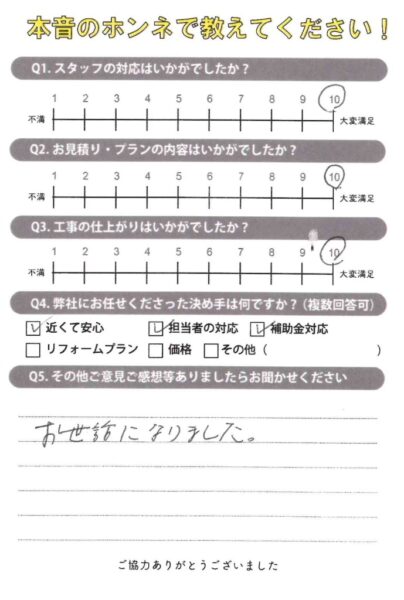 本音のホンネで教えてください！
Q1. スタッフの対応はいかがでしたか？
1 2 3 4 5 6 7 8 9 10
不満 大変満足
Q2. お見積り・プランの内容はいかがでしたか？
1 2 3 4 5 6 7 8 9 10
不満 大変満足
Q3. 工事の仕上がりはいかがでしたか？
1 2 3 4 5 6 7 8 9 10
不満 大変満足
Q4. 弊社にお任せくださった決め手は何ですか？（複数回答可）
近くて安心 担当者の対応 補助金対応
リフォームプラン 価格 その他（ ）
Q5. その他ご意見ご感想等ありましたらお聞かせください
お世話になりました。
ご協力ありがとうございました